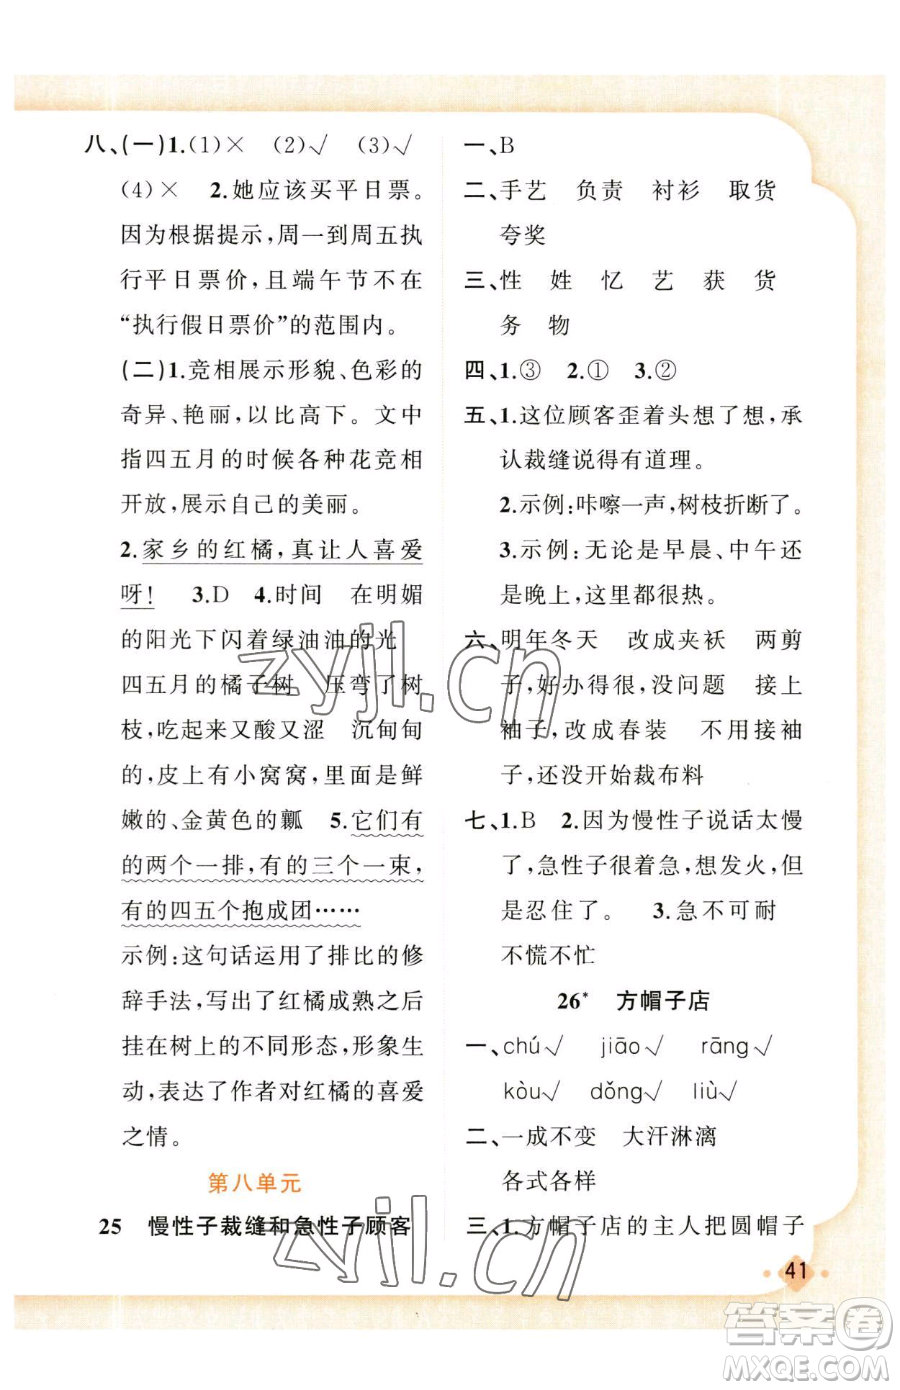 八、(一)1.(1)× (2)√ (3)√
(4)× 2.她应该买平日票。
因为根据提示,周一到周五执
行平日票价,且端午节不在
“执行假日票价”的范围内。
(二)1.竞相展示形貌、色彩的
奇异、艳丽,以比高下。文中
指四五月的时候各种花竞相
开放,展示自己的美丽。
2.家乡的红橘,真让人喜爱
呀! 3.D 4.时间 在明媚
的阳光下闪着绿油油的光
四五月的橘子树 压弯了树
枝,吃起来又酸又涩 沉甸甸
的,皮上有小窝窝,里面是鲜
嫩的、金黄色的瓤 5.它们有
的两个一排,有的三个一束,
有的四五个抱成团……
示例:这句话运用了排比的修
辞手法,写出了红橘成熟之后
挂在树上的不同形态,形象生
动,表达了作者对红橘的喜爱
之情。
第八单元
25 慢性子裁缝和急性子顾客
一、B
二、手艺 负责 衬衫 取货
夸奖
三、性 姓 忆 艺 获 货
务 物
四、1.③ 2.① 3.②
五、1.这位顾客歪着头想了想,承
认裁缝说得有道理。
2.示例:咔嚓一声,树枝折断了。
3.示例:无论是早晨、中午还
是晚上,这里都很热。
六、明年冬天 改成夹袄 两剪
子,好办得很,没问题 接上
袖子,改成春装 不用接袖
子,还没开始裁布料
七、1.B 2.因为慢性子说话太慢
了,急性子很着急,想发火,但
是忍住了。 3.急不可耐
不慌不忙
26* 方帽子店
一、chú√ jiāo√ rāng√
kòu√ dǒng√ liù√
二、一成不变 大汗淋漓
各式各样
三、1.方帽子店的主人把圆帽子
41
zyjl.cn
zyjl.cn
答案圈
MXQE.COM